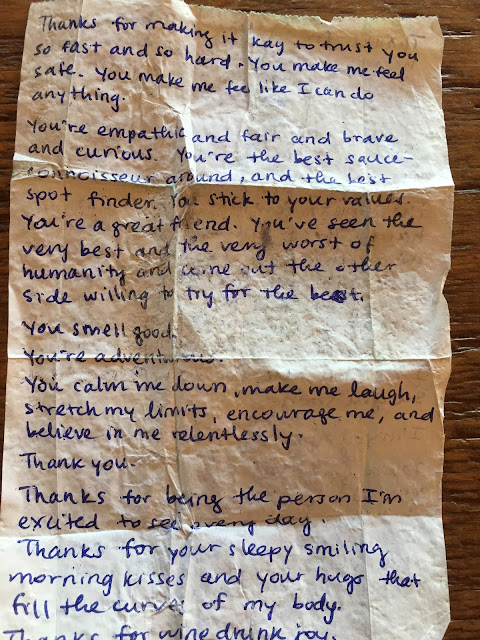 Thanks for making it kay to trust you
so fast and so hard. You make me feel
safe. You make me feel like I can do
anything.
You're empathic and fair and brave
and curious. You're the best sauce-
connoisseur around, and the best
spot finder. You stick to your values.
You're a great friend. You've seen the
very best and the very worst of
humanity and come out the other
side willing to try for the best.
You smell good.
You're adventurous.
You calm me down, make me laugh,
stretch my limits, encourage me, and
believe in me relentlessly.
Thank you.
Thanks for being the person I'm
excited to see every day.
Thanks for your sleepy smiling
morning kisses and your hugs that
fill the curve of my body.
Thanks for wine drunk joy.